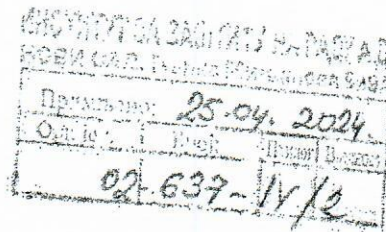 ИНСТИТУТ ЗА ЗАШТИТУ НА РАДУ А.Д.
НОВИ САД
Примљено: 25.04. 2024.
Орг. јед. Број Прилог Вредност
02-637-IV/2